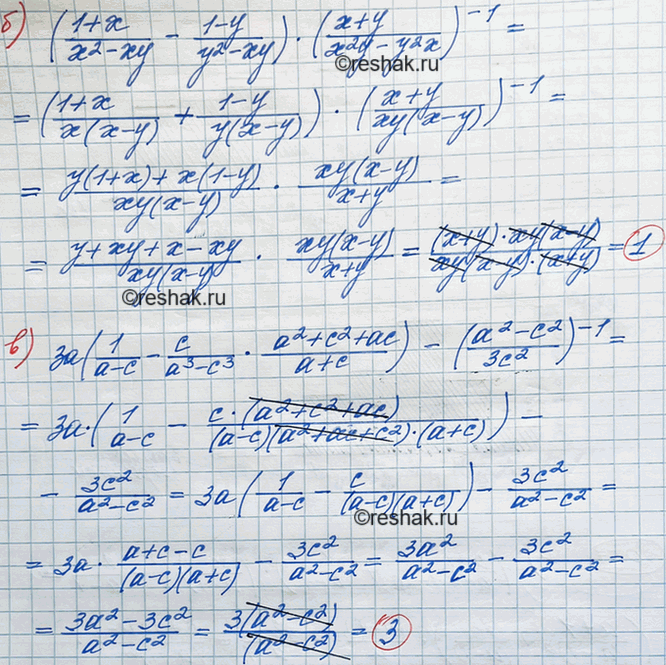 б) ((1+x)/(x²-xy) - (1-y)/(y²-xy)) · ((x+y)/(x²y-y²x))⁻¹ =
©reshak.ru
= ((1+x)/(x(x-y)) + (1-y)/(y(x-y))) · ((x+y)/(xy(x-y)))⁻¹ =
= (y(1+x)+x(1-y))/(xy(x-y)) · (xy(x-y))/(x+y) =
= (y+xy+x-xy)/(xy(x-y)) · (xy(x-y))/(x+y) = ((x+y)·xy(x-y))/(xy(x-y)·(x+y)) = 1
©reshak.ru
в) 3a(1/(a-c) - c/(a³-c³) · (a²+c²+ac)/(a+c)) - ((a²-c²)/(3c²))⁻¹ =
= 3a·(1/(a-c) - (c·(a²+c²+ac))/((a-c)(a²+ac+c²)·(a+c))) -
- 3c²/(a²-c²) = 3a(1/(a-c) - c/((a-c)(a+c))) - 3c²/(a²-c²) =
©reshak.ru
= 3a · (a+c-c)/((a-c)(a+c)) - 3c²/(a²-c²) = 3a²/(a²-c²) - 3c²/(a²-c²) =
= (3a²-3c²)/(a²-c²) = 3(a²-c²)/(a²-c²) = 3